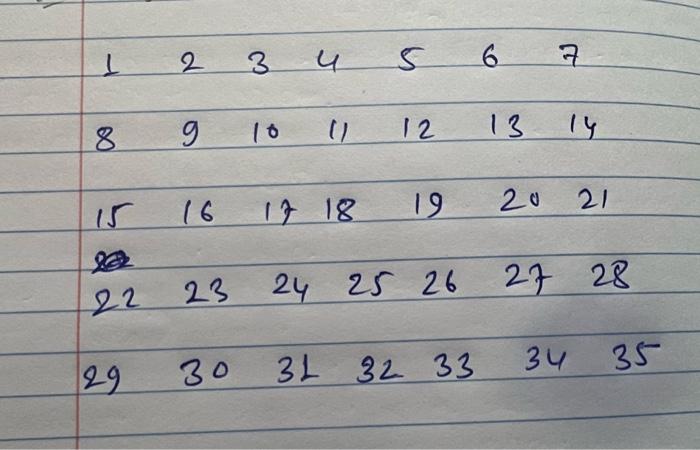 1 2 3 4 5 6 7
8 9 10 11 12 13 14
15 16 17 18 19 20 21
22 23 24 25 26 27 28
29 30 31 32 33 34 35